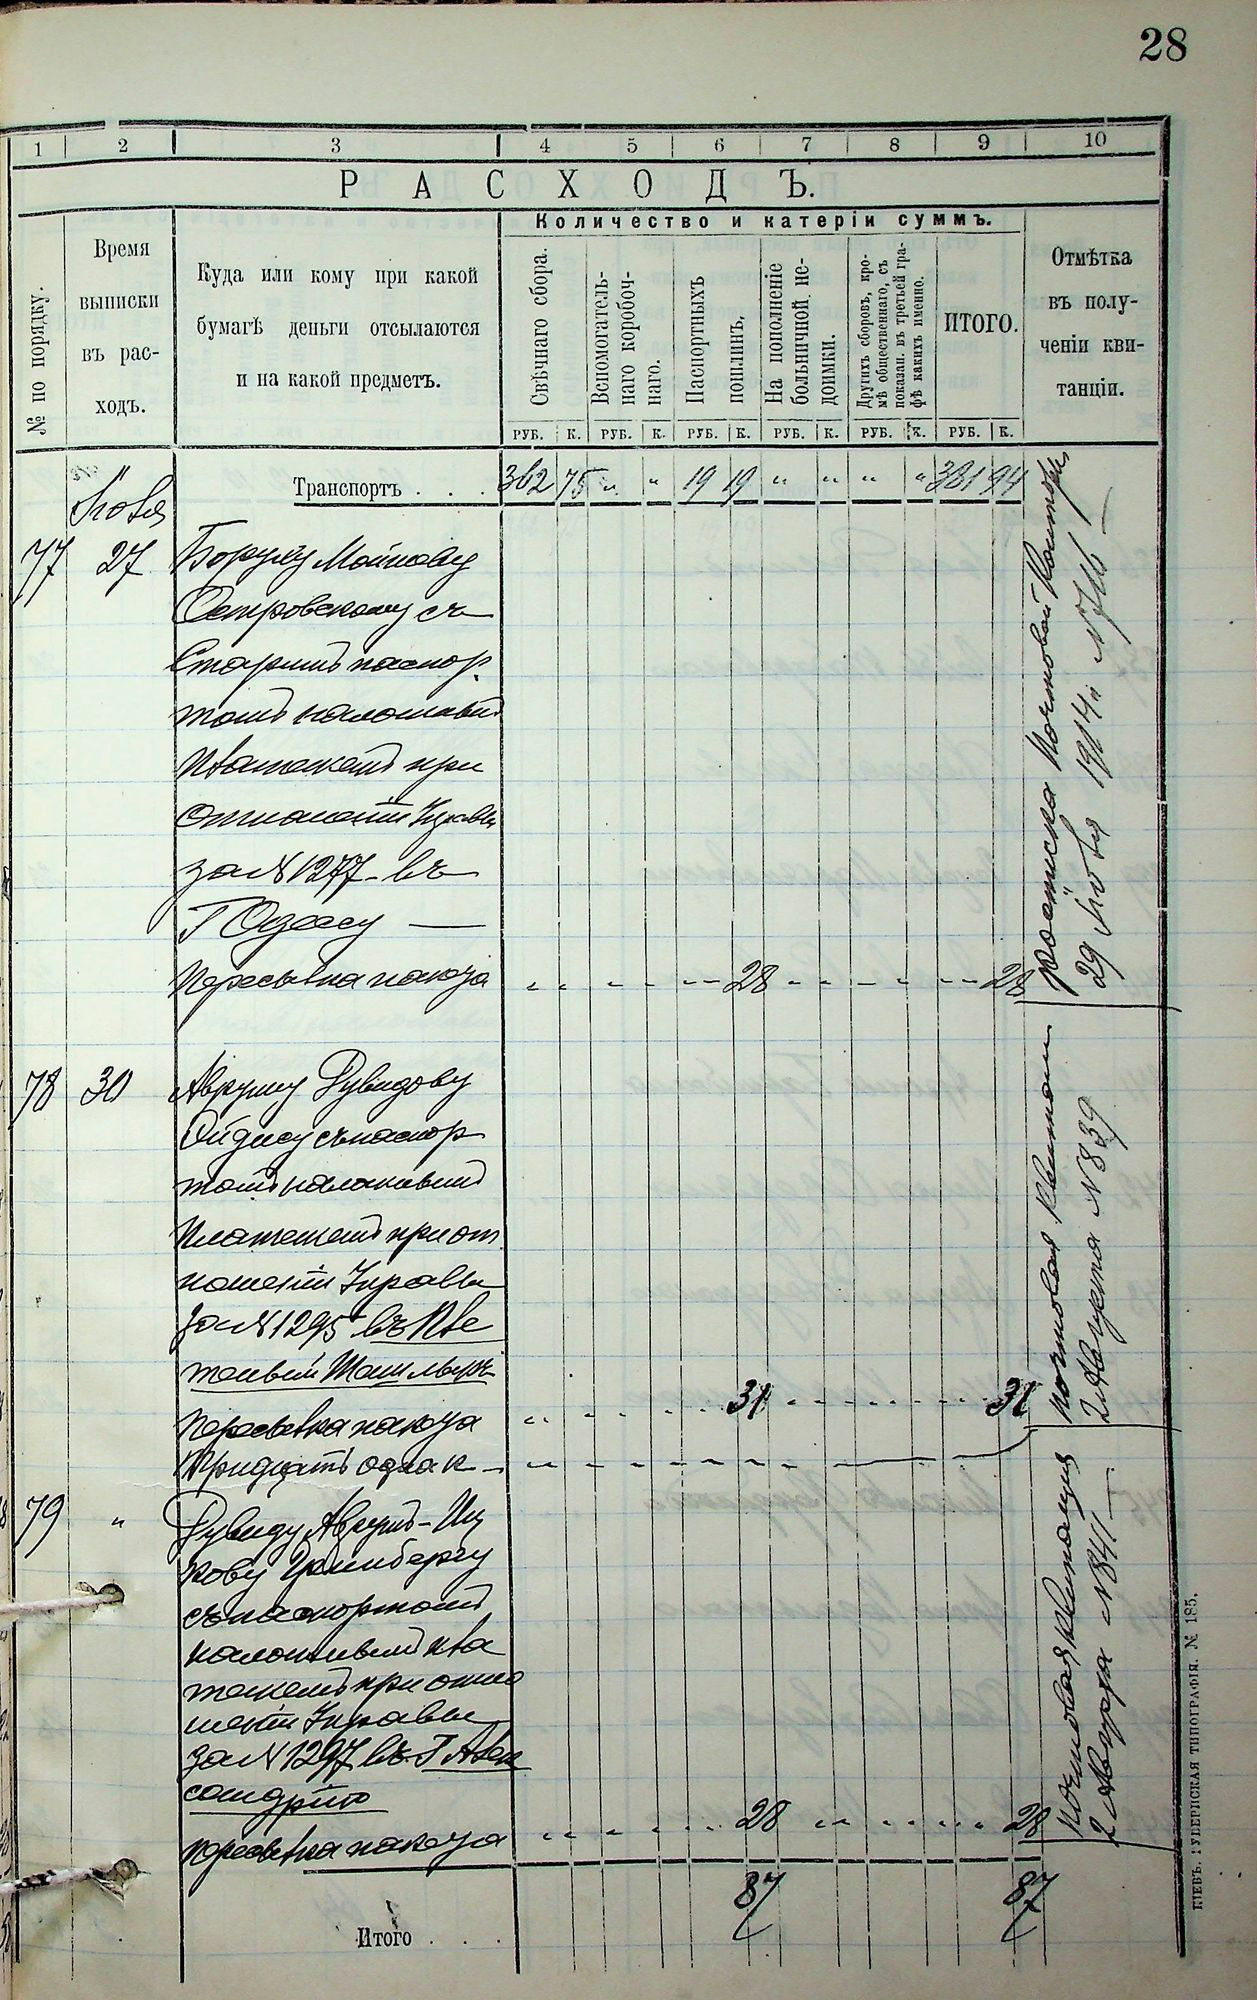 28
1 2 3 4 5 6 7 8 9 10
РАСХОДЪ.
№ по порядку.
Время выписки въ рас- ходъ.
Куда или кому при какой
бумагѣ деньги отсылаются
и на какой предметъ.
Количество и катерiи суммъ.
Свѣчнаго сбора.
Вспомогатель-
наго коробоч-
наго.
Паспортныхъ
пошлинъ.
На пополненiе
больничной не-
доимки.
Другихъ сборовъ, кро-
мѣ общественнаго, съ
показан. въ третьей гра-
фѣ какихъ именно.
ИТОГО.
Отмѣтка
въ полу-
ченiи кви-
танцiи.
РУБ. К. РУБ. К. РУБ. К. РУБ. К. РУБ. К. РУБ. К.
Транспортъ . . . 362 75 „ „ 19 19 „ „ „ „ 381 94
Iюля
77 27 Боруху Мошкову
Островскому съ
Старымъ паспор
томъ наложнымъ
платежемъ при
отношенiи Управы
за N 1277 - въ
Г Одессу —
Пересылка пакета 28 28
росписка Почтовой Конторы
29 Iюля 1914 г. N 716 —
78 30 Авруму Рувидову
Ойдису съ паспор
томъ наложнымъ
Платежемъ при от
ношенiи Управы
за N 1295 въ Ме
Пересылка пакета 31 31
Тридцать одна к —
почтовая Квитан
2 Августа N 839
79 „ Рувиду Аврумъ-Иц
кову Гринбергу
съ паспортомъ
наложнымъ пла
тежемъ при отно
шенiи Управы
за N 1297 въ Г Алек
сандрiю
пересылка пакета 28 28
почтовая квитанция
N 841 —
Итого . . . 87 87
КIЕВЪ. ГУБЕРНСКАЯ ТИПОГРАФIЯ. № 185.